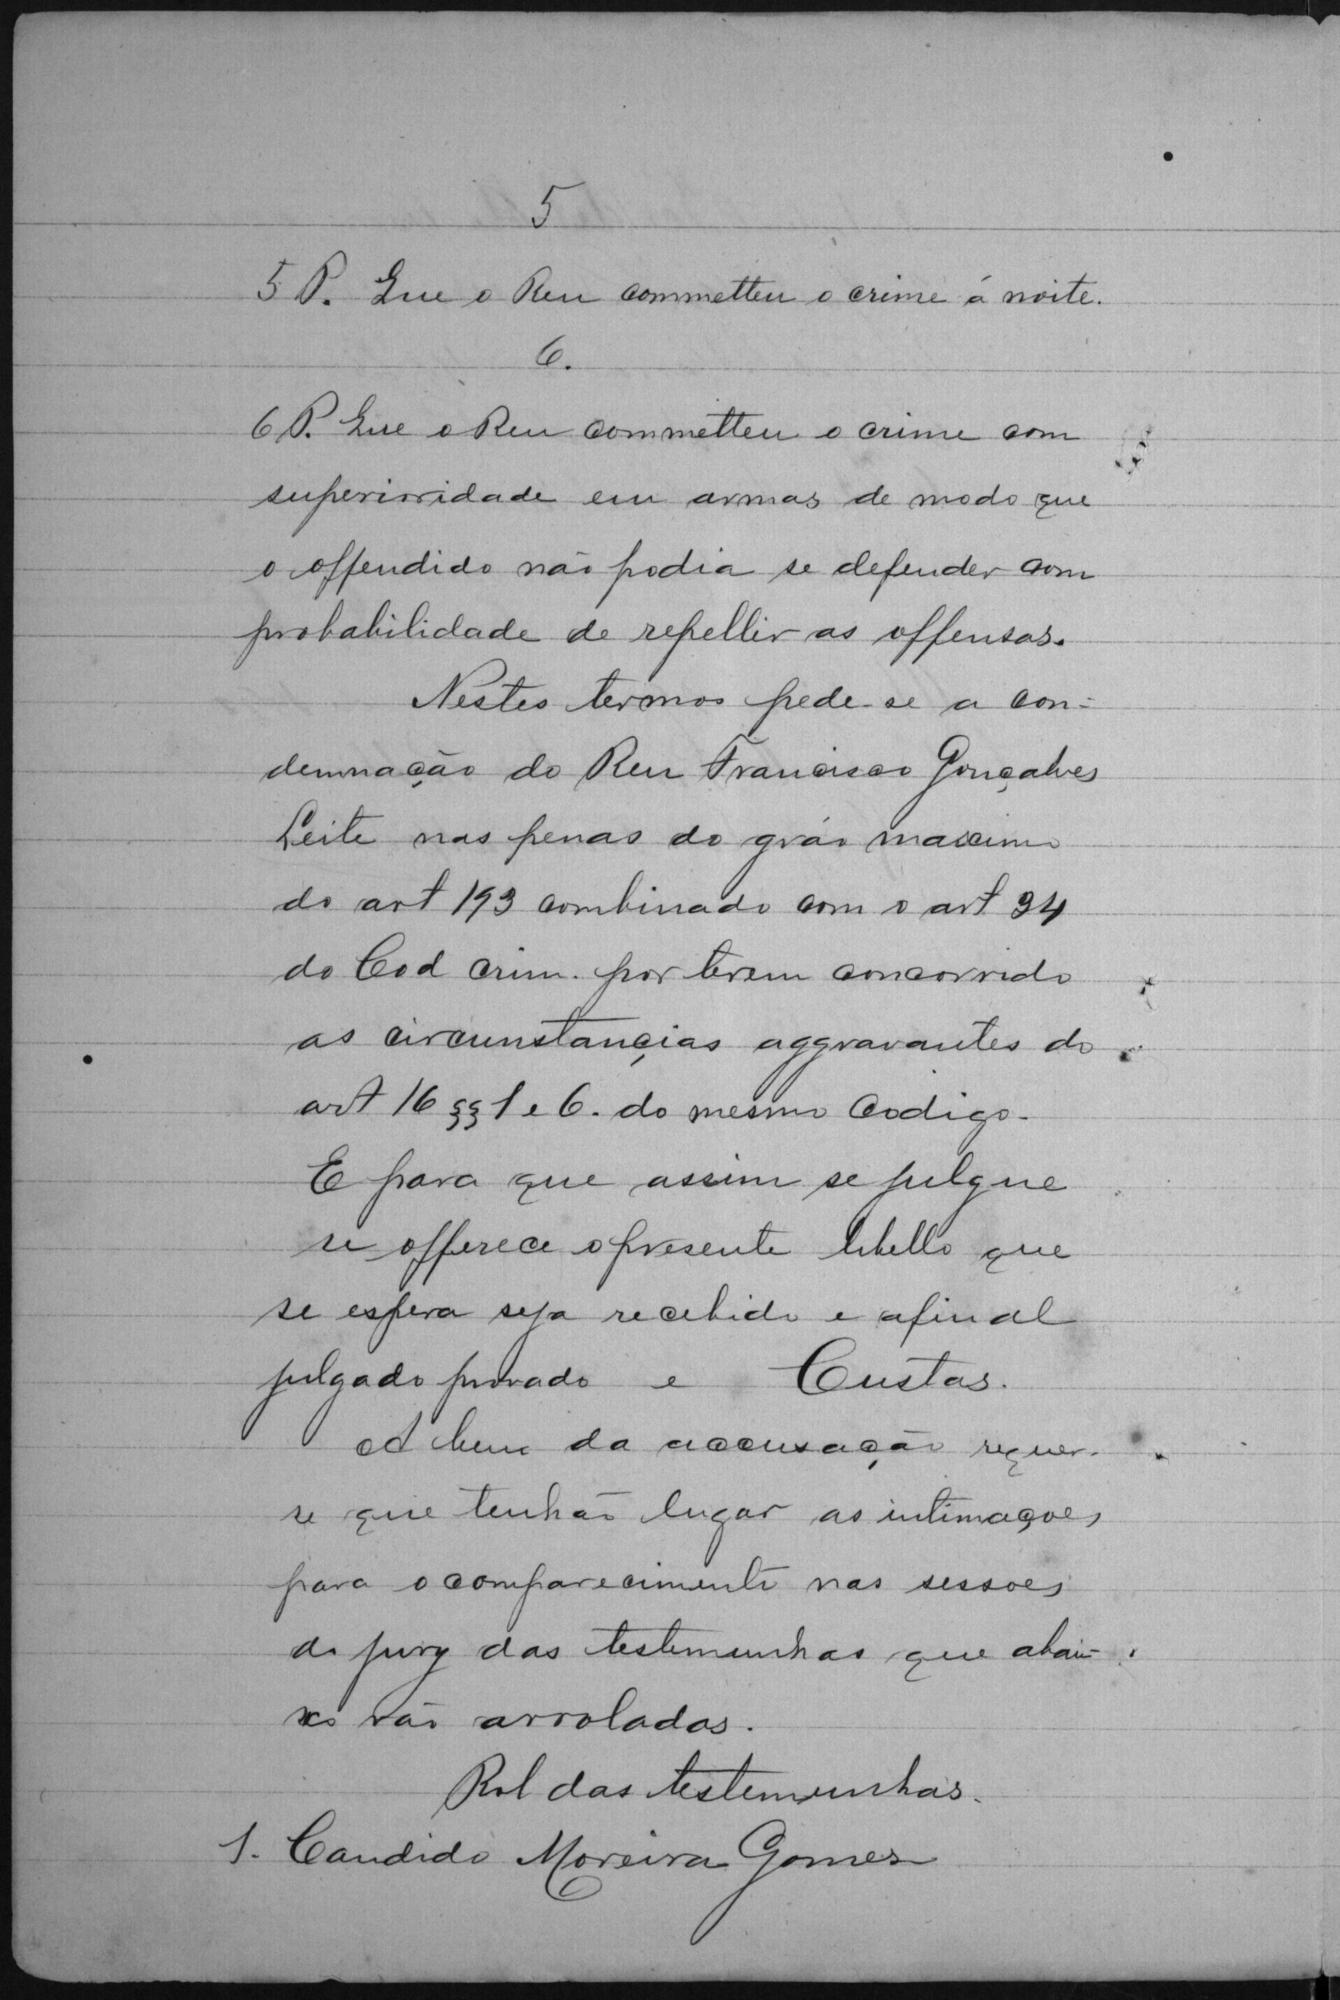 5
5 P. Que o Reu commetteu o crime á noite.
6.
6 P. Que o Reu commetteu o crime com
superioridade em armas de modo que
o offendido não podia se defender com
probabilidade de repellir as offensas.
Nestes termos pede-se a con-
demnação do Reu Francisco Gonçalves
Leite nas penas do gráo maximo
do art 193 combinado com o art 34
do Cod crim. por terem concorrido
as circunstançias aggravantes do
art 16 §§ 1 e 6. do mesmo Codigo.
E para que assim se julgue
se offerece o presente libello que
se espera seja recebido e afinal
julgado provado e Custas.
A bem da accusação requer-
se que tenhão lugar as intimações
para o comparecimento nas sessoes
do jury das testemunhas que abai-
xo vão arroladas.
Rol das testemunhas.
1. Candido Moreira Gomes